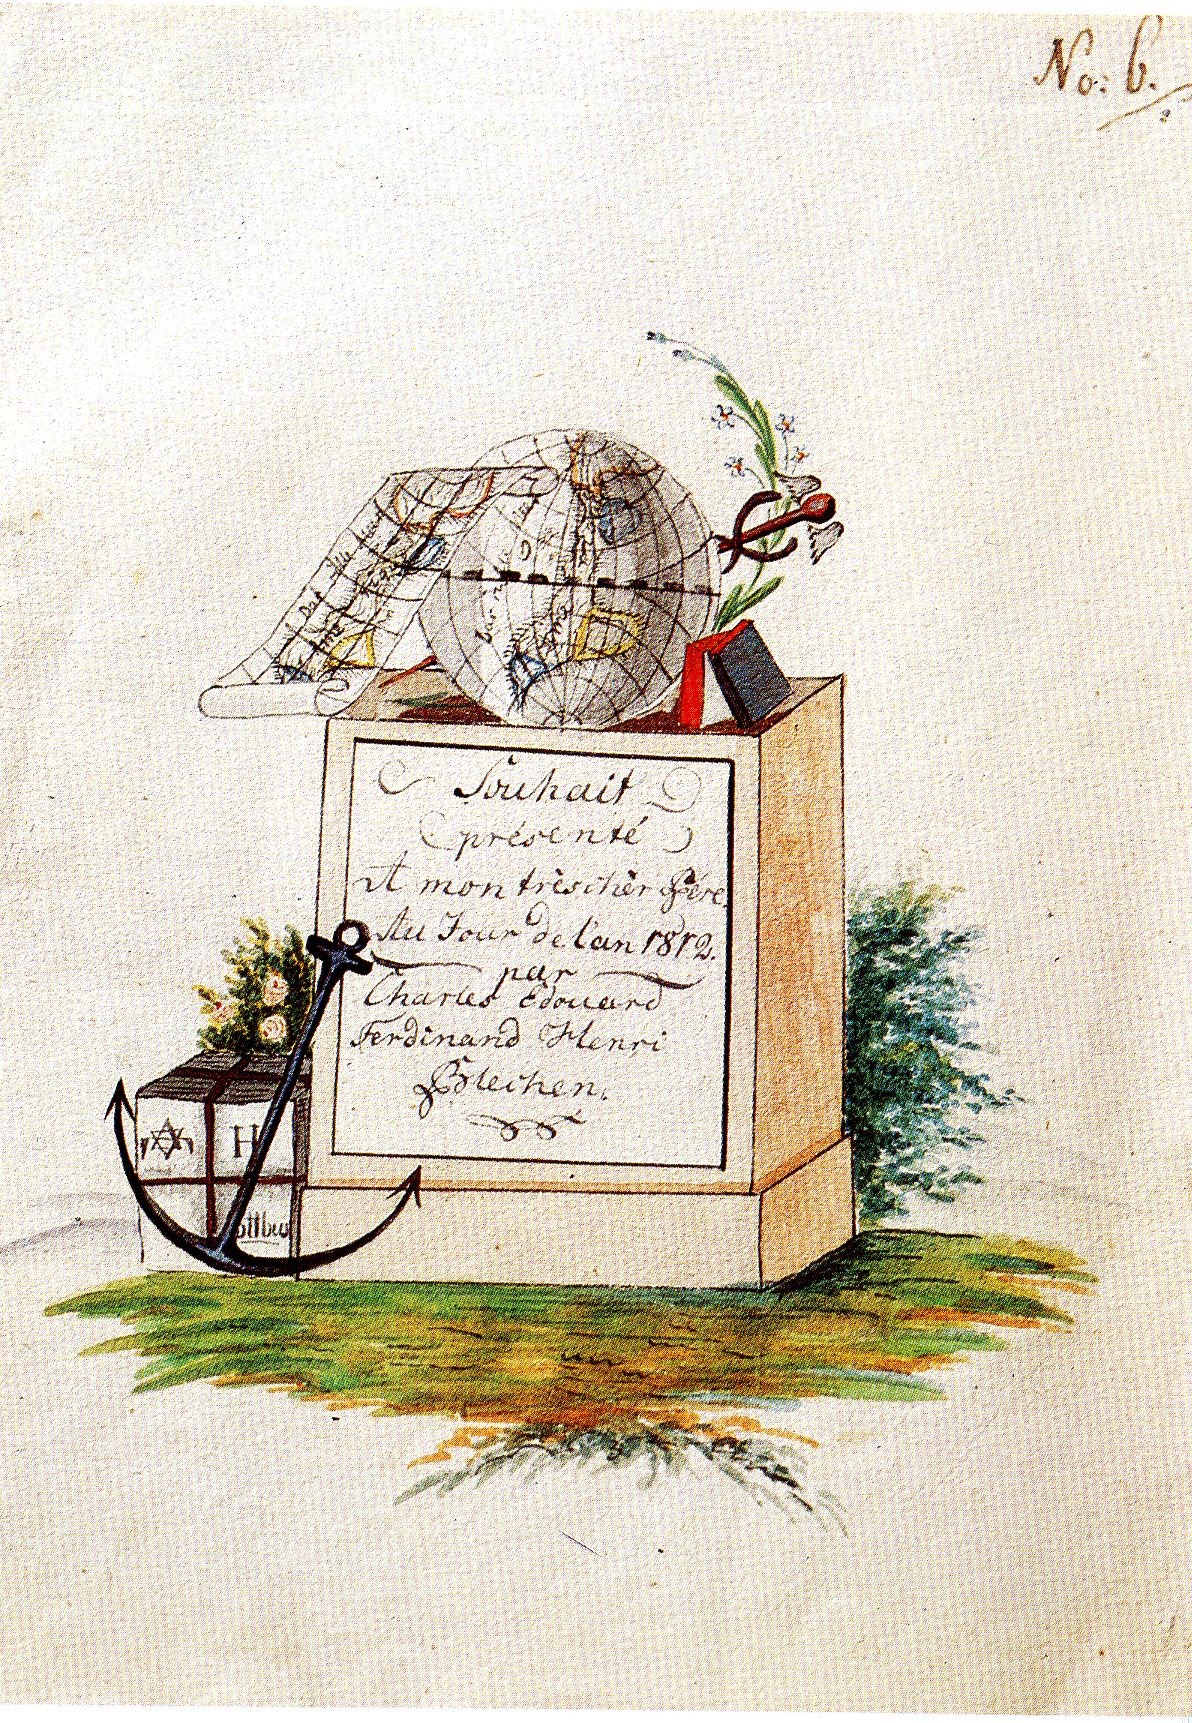 No: 6.
Souhait
présenté
A mon trèschèr Père
Au Jour de l'an 1812.
par
Charles Edouard
Ferdinand Henri
Blechen.
H
ottbus